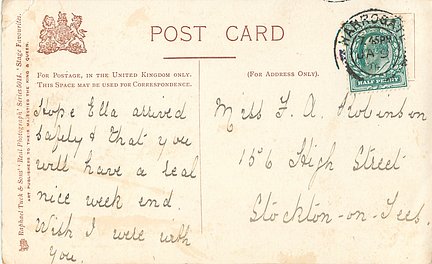 POST CARD
FOR POSTAGE, IN THE UNITED KINGDOM ONLY.
THIS SPACE MAY BE USED FOR CORRESPONDENCE.
(FOR ADDRESS ONLY.)
HARROGATE
HALFPENNY
Hope Ella arrived
safely & that you
will have a real
nice week end.
Wish I were with
You.
Miss F. A. Robinson
156 High Street
Stockton-on-Tees.
Raphael Tuck & Sons' "Real Photograph" Series 5014. "Stage Favourites."
ART PUBLISHERS TO THEIR MAJESTIES THE KING & QUEEN.